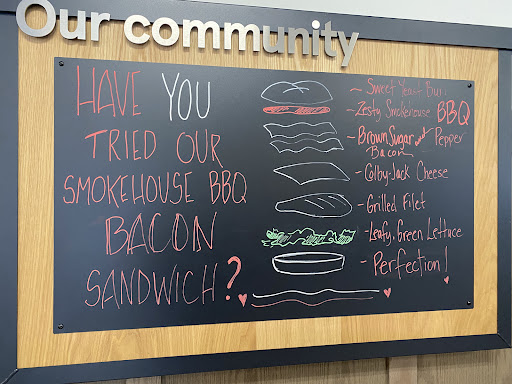 Our community
HAVE YOU
TRIED OUR
SMOKEHOUSE BBQ
BACON
SANDWICH?
~ Sweet Yeast Bun
- Zesty Smokehouse BBQ
- Brown Sugar and Pepper
Bacon
- Colby-Jack Cheese
- Grilled Filet
- Leafy, Green Lettuce
- Perfection!